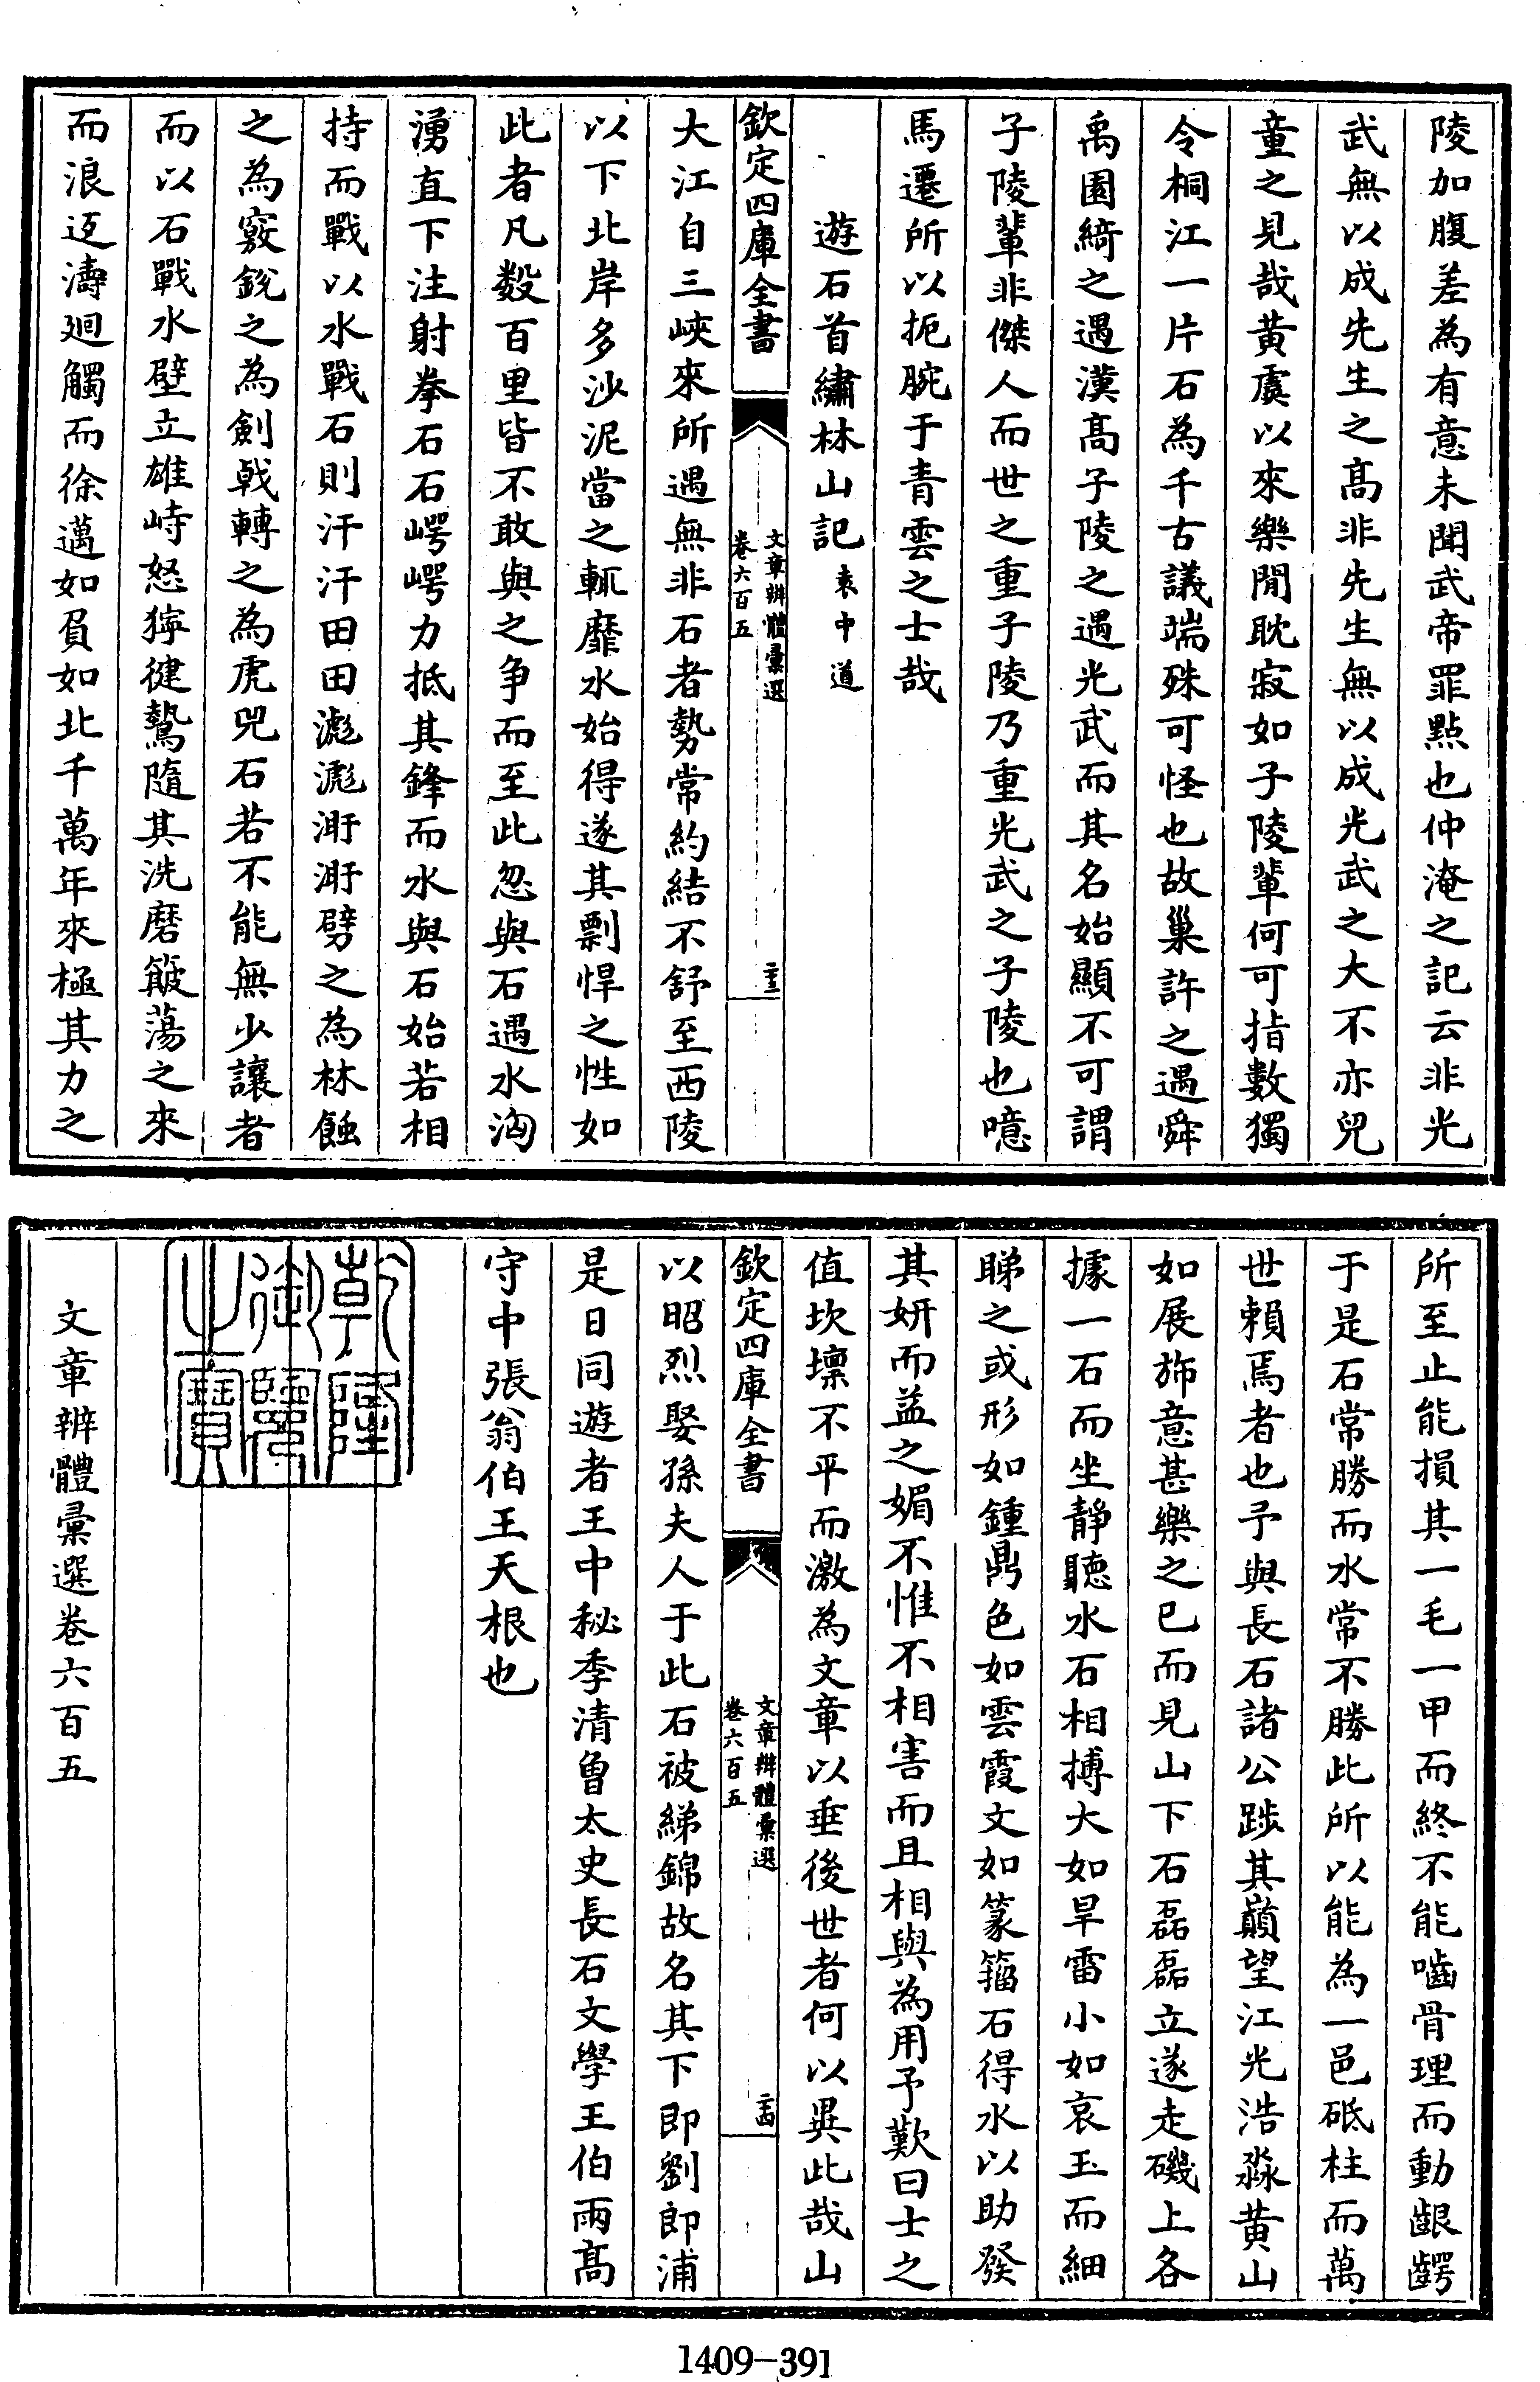 陵加腹差為有意未聞武帝罪點也仲淹之記云非光
武無以成先生之髙非先生無以成光武之大不亦兒
童之見哉黄虞以來樂閒耽寂如子陵輩何可指數獨
令桐江一片石為千古議端殊可怪也故巢許之遇舜
禹園綺之遇漢髙子陵之遇光武而其名始顯不可謂
子陵輩非傑人而世之重子陵乃重光武之子陵也噫
馬遷所以扼腕于青雲之士哉
遊石首繡林山記 袁中道
欽定四庫全書
文章辨體彙選
卷六百五
二十三
大江自三峽來所遇無非石者勢常約結不舒至西陵
以下北岸多沙泥當之輒靡水始得遂其剽悍之性如
此者凡數百里皆不敢與之争而至此忽與石遇水洶
湧直下注射拳石石崿崿力抵其鋒而水與石始若相
持而戰以水戰石則汗汗田田滮滮㳺㳺劈之為林蝕
之為竅銳之為劍戟轉之為虎兕石若不能無少讓者
而以石戰水壁立雄峙怒獰健鷙隨其洗磨簸蕩之來
而浪返濤廻觸而徐邁如負如北千萬年來極其力之
所至止能損其一毛一甲而終不能嚙骨理而動齦齶
于是石常勝而水常不勝此所以能為一邑砥柱而萬
世賴焉者也予與長石諸公陟其巔望江光浩淼黄山
如展斾意甚樂之已而見山下石磊磊立遂走磯上各
據一石而坐靜聽水石相搏大如旱雷小如哀玉而細
睇之或形如鍾鼎色如雲霞文如篆籀石得水以助發
其妍而益之媚不惟不相害而且相與為用予歎曰士之
值坎壈不平而激為文章以垂後世者何以異此哉山
欽定四庫全書
文章辨體彙選
卷六百五
二十四
以昭烈娶孫夫人于此石被綈錦故名其下即劉郎浦
是日同遊者王中秘季清曾太史長石文學王伯雨髙
守中張翁伯王天根也
乾隆御覽之寶
文章辨體彙選卷六百五
1409-391